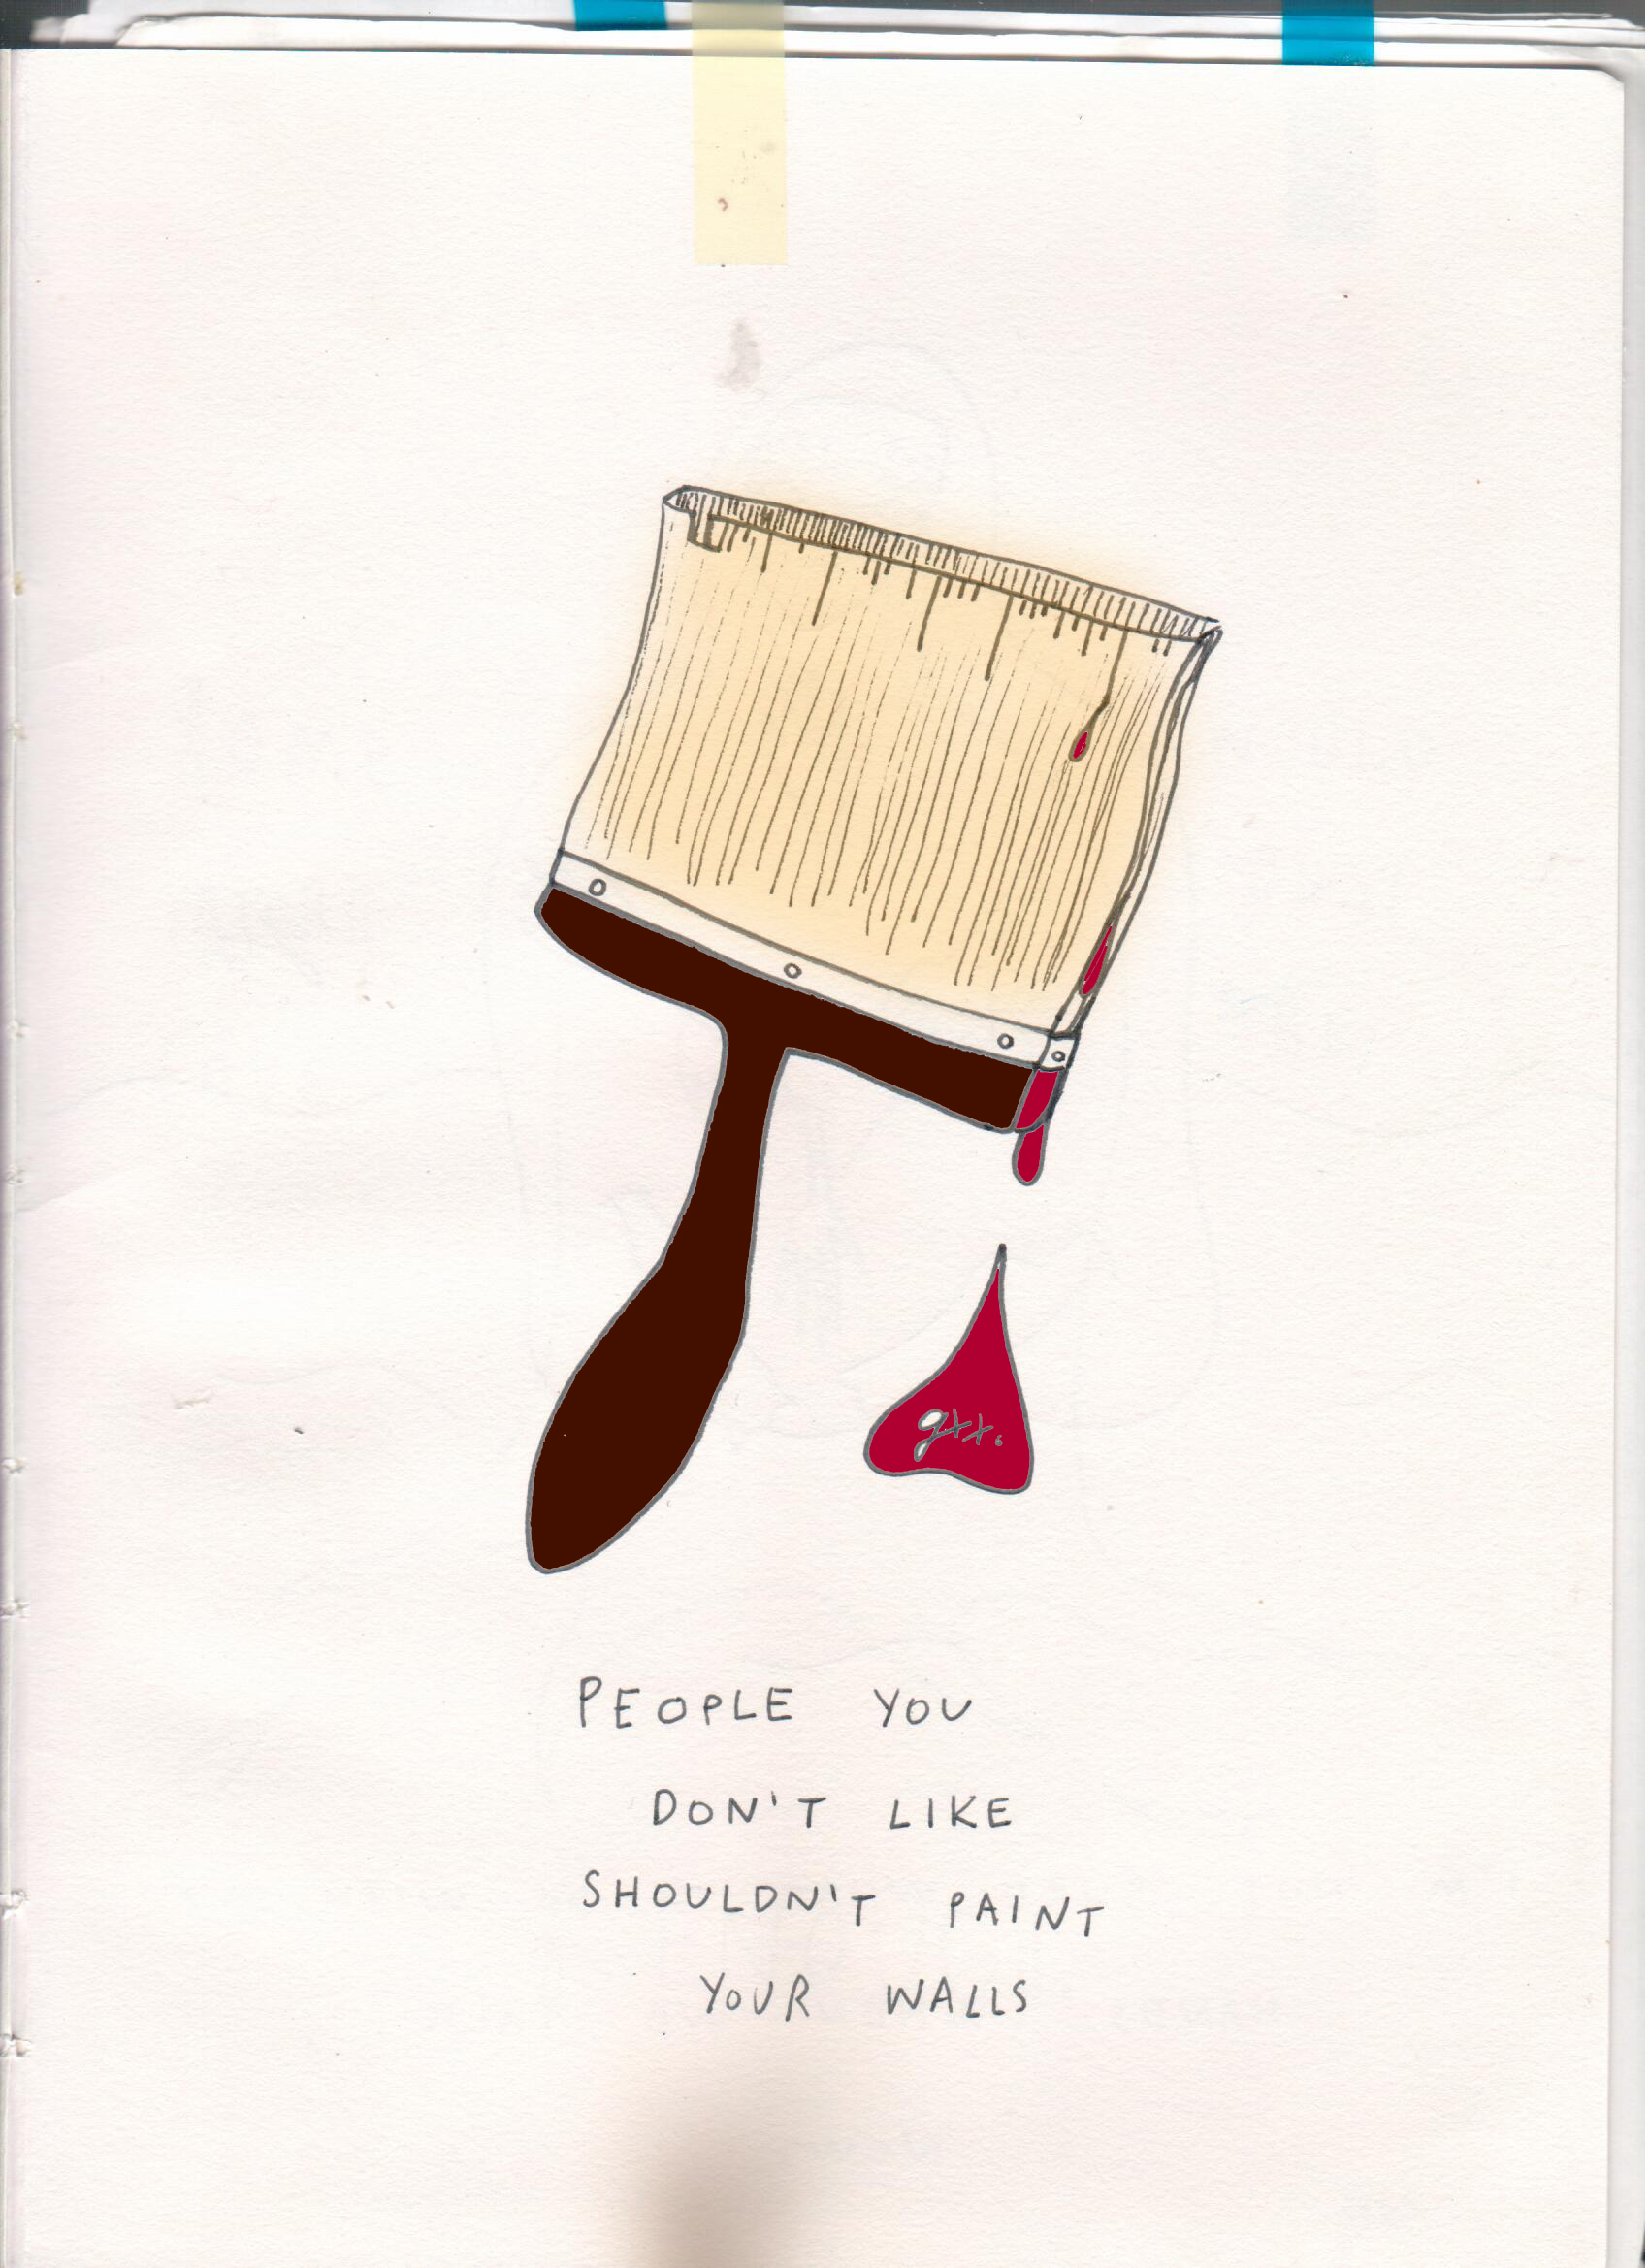 gxx.
PEOPLE YOU
DON'T LIKE
SHOULDN'T PAINT
YOUR WALLS